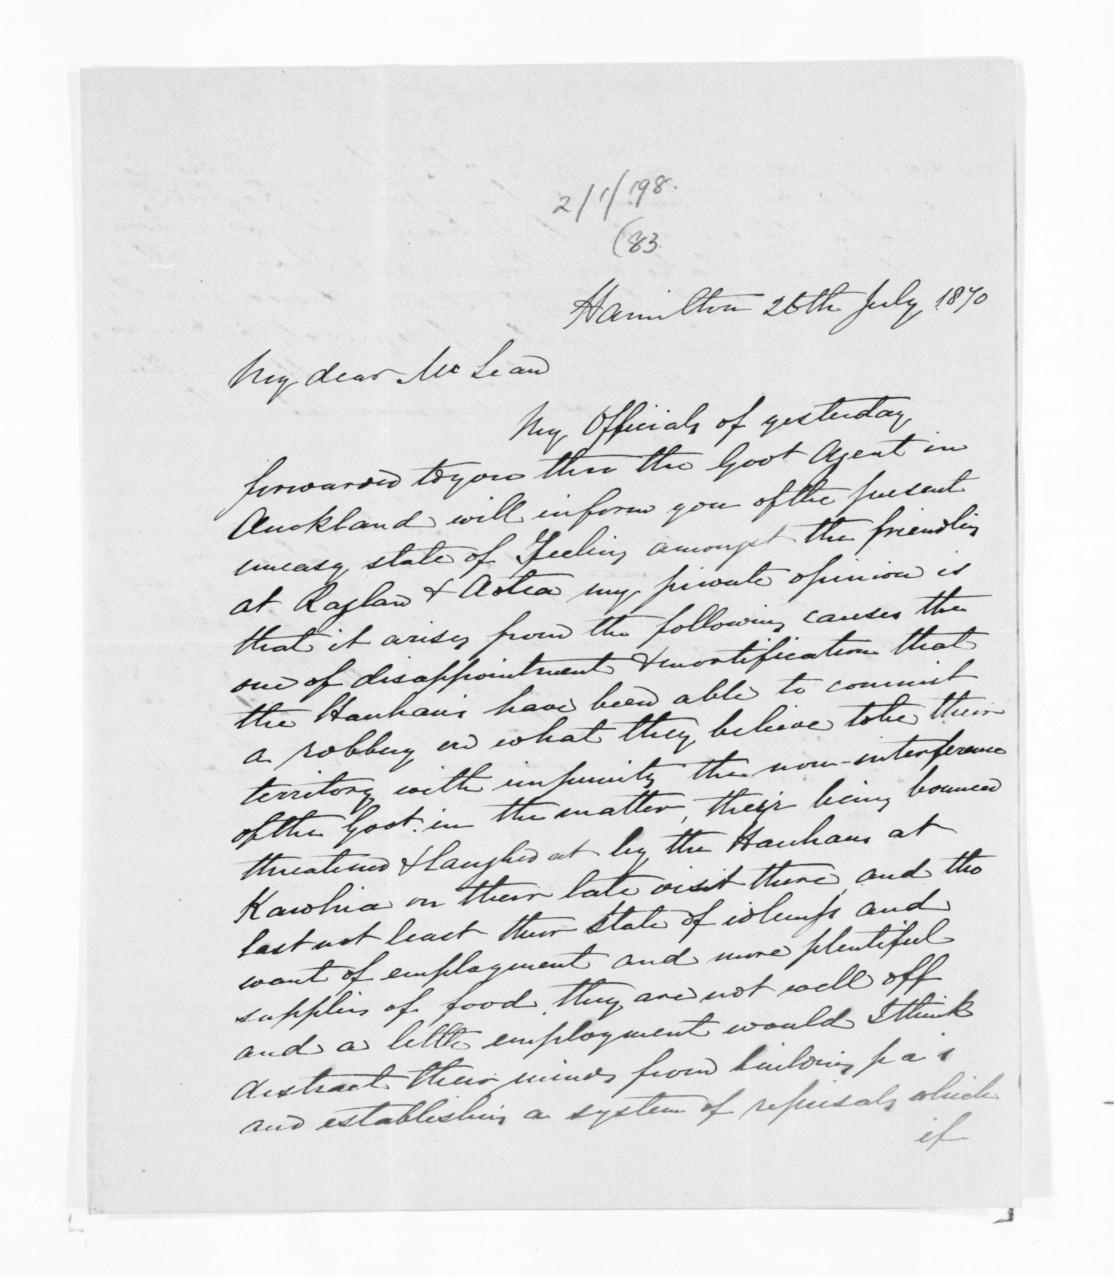 2/1/198.
(83.
Hamilton 26th July 1870
My dear McLean
My Officials of yesterday
forwarded to you thro the Govt Agent in
Auckland will inform you of the present
uneasy state of Feeling amongst the friendlies
at Raglan & Aotea my private opinion is
that it arises from the following causes the
one of disappointment & mortification that
the Hauhaus have been able to commit
a robbery on what they believe to be their
territory with impunity the non-interference
of the Govt. in the matter, they'r being bounced
threatened & laughed at by the Hauhaus at
Kawhia on their late visit there, and tho
last not least their state of idleness and
want of employment and more plentiful
supplies of food. they are not well off
and a little employment would I think
distract their minds from building pa's
and establishing a system of reprisals which
if